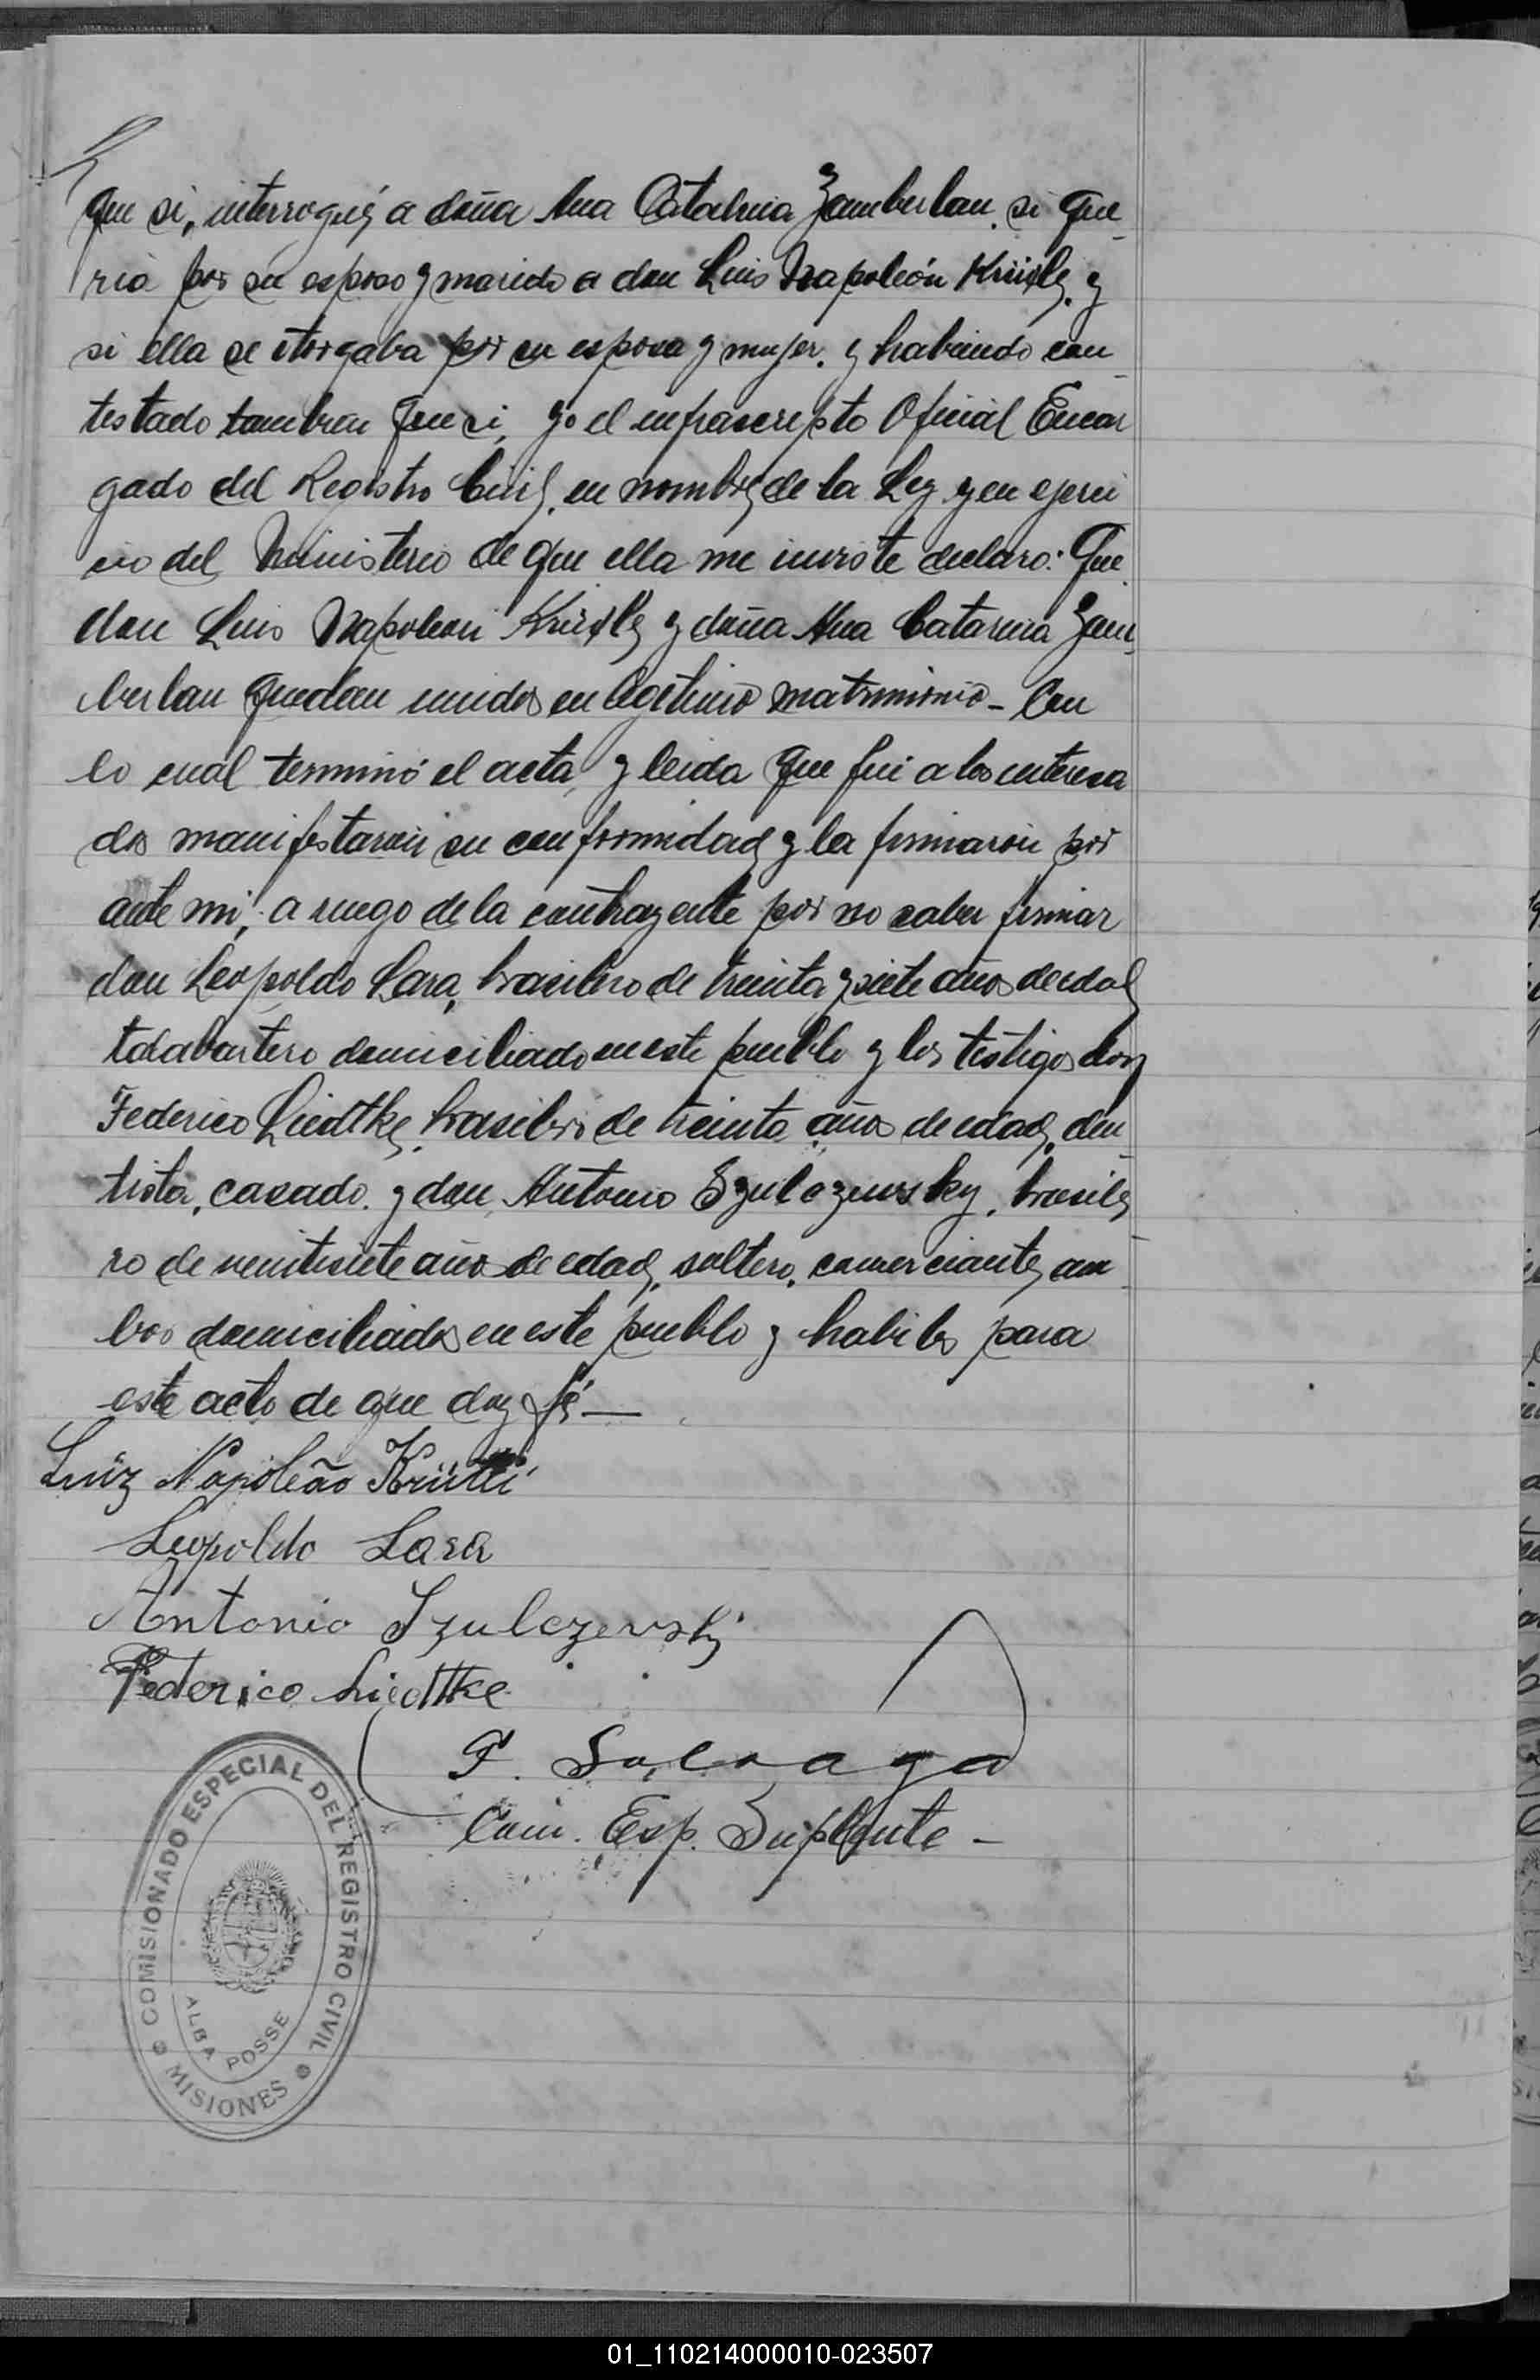 que si, interrogué a doña Ana Catalina Zamberlan, si que
ria por su esposo y marido a don Luis Napoleón y
si ella se otorgaba por su esposa y mujer, y habiendo con
testado tambien que si, yo el infrascripto Oficial Encar
gado del Registro Civil, en nombre de la Ley y en ejerci
cio del Ministerio de que ella me inviste declaro: Que
don Luis Napoleon y doña Ana Catarina Zam
berlan quedan unidos en legitimo matrimonio - Con
lo cual terminó el acta, y leida que fué a los interesa
dos manifestaron su conformidad y la firmaron por
ante mi, a ruego de la contrayente por no saber firmar
don Leopoldo Lara, brasilero de treinta y siete años de edad
talabartero domiciliado en este pueblo y los testigos don
Federico Liedtke, brasilero de treinta años de edad, den
tista, casado, y don Antonio Szulczewsky, brasile
ro de veintisiete años de edad, soltero, comerciante, am
bos domiciliados en este pueblo y habiles para
este acto de que doy fé —
Luiz Napoleão
Leopoldo Lara
Antonio Szulczewski
Federico Liedtke
Com. Esp. Suplente -
COMISIONADO ESPECIAL DEL REGISTRO CIVIL
ALBA POSSE
MISIONES
01_110214000010-023507